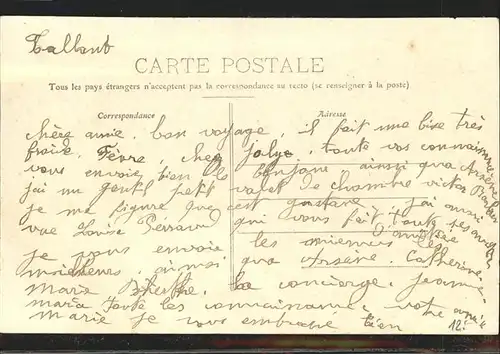 Tallant
CARTE POSTALE
Tous les pays étrangers n'acceptent pas la correspondance au recto (se renseigner à la poste)
Correspondance Adresse
chère amie. bon voyage, il fait une bise très
fraide. Fèvre, chez jolye, toute vos connaissance
vous envoie bien le bonjour ainsi qua Arsène
j'ai un gentil petit valet de chambre victor
je me figure que cest gustave, j'ai
vue Louise qui vous fait toute ses
je vous envoie les miennes
ainsi qua Arsène. Catherine
maria la concierge. jeanne
maria toute les connaissance. votre amie
marie je vous embrasse bien 12